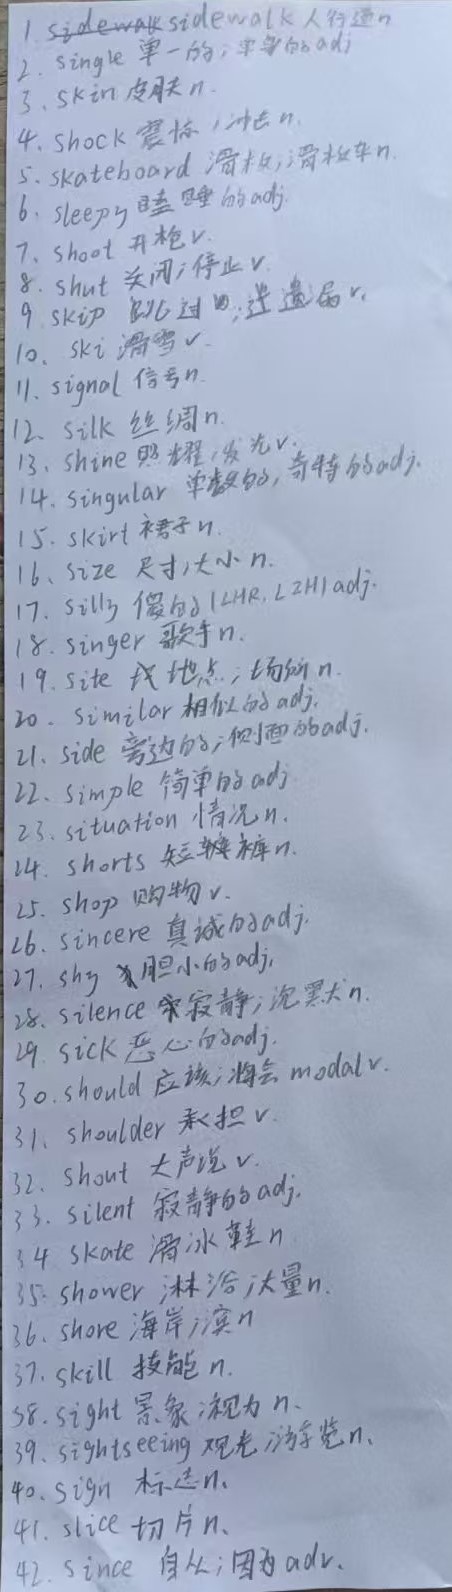 1. sidewalk sidewalk 人行道n
2. single 单一的;单身的adj
3. skin 皮肤n.
4. shock 震惊,冲击n.
5. skateboard 滑板;滑板车n.
6. sleepy 瞌睡的adj.
7. shoot 开枪v.
8. shut 关闭;停止v.
9 skip 跳过;遗漏v.
10. ski 滑雪v.
11. signal 信号n.
12. silk 丝绸n.
13. shine 照耀,发光v.
14. singular 单数的,奇特的adj.
15. skirt 裙子n.
16. size 尺寸,大小n.
17. silly 傻的(LHR, LZH)adj.
18. singer 歌手n.
19. site 地点;场所n.
20. similar 相似的adj.
21. side 旁边的;侧面的adj.
22. simple 简单的adj
23. situation 情况n.
24. shorts 短裤n.
25. shop 购物v.
26. sincere 真诚的adj.
27. shy 胆小的adj.
28. silence 寂静;沉默n.
29. sick 恶心的adj.
30. should 应该;将会modal v.
31. shoulder 承担v.
32. shout 大声说v.
33. silent 寂静的adj.
34 skate 滑冰鞋n
35. shower 淋浴;大量n.
36. shore 海岸;滨n
37. skill 技能n.
38. sight 景象;视力n.
39. sightseeing 观光;游览n.
40. sign 标志n.
41. slice 切片n.
42. since 自从;因为adv.